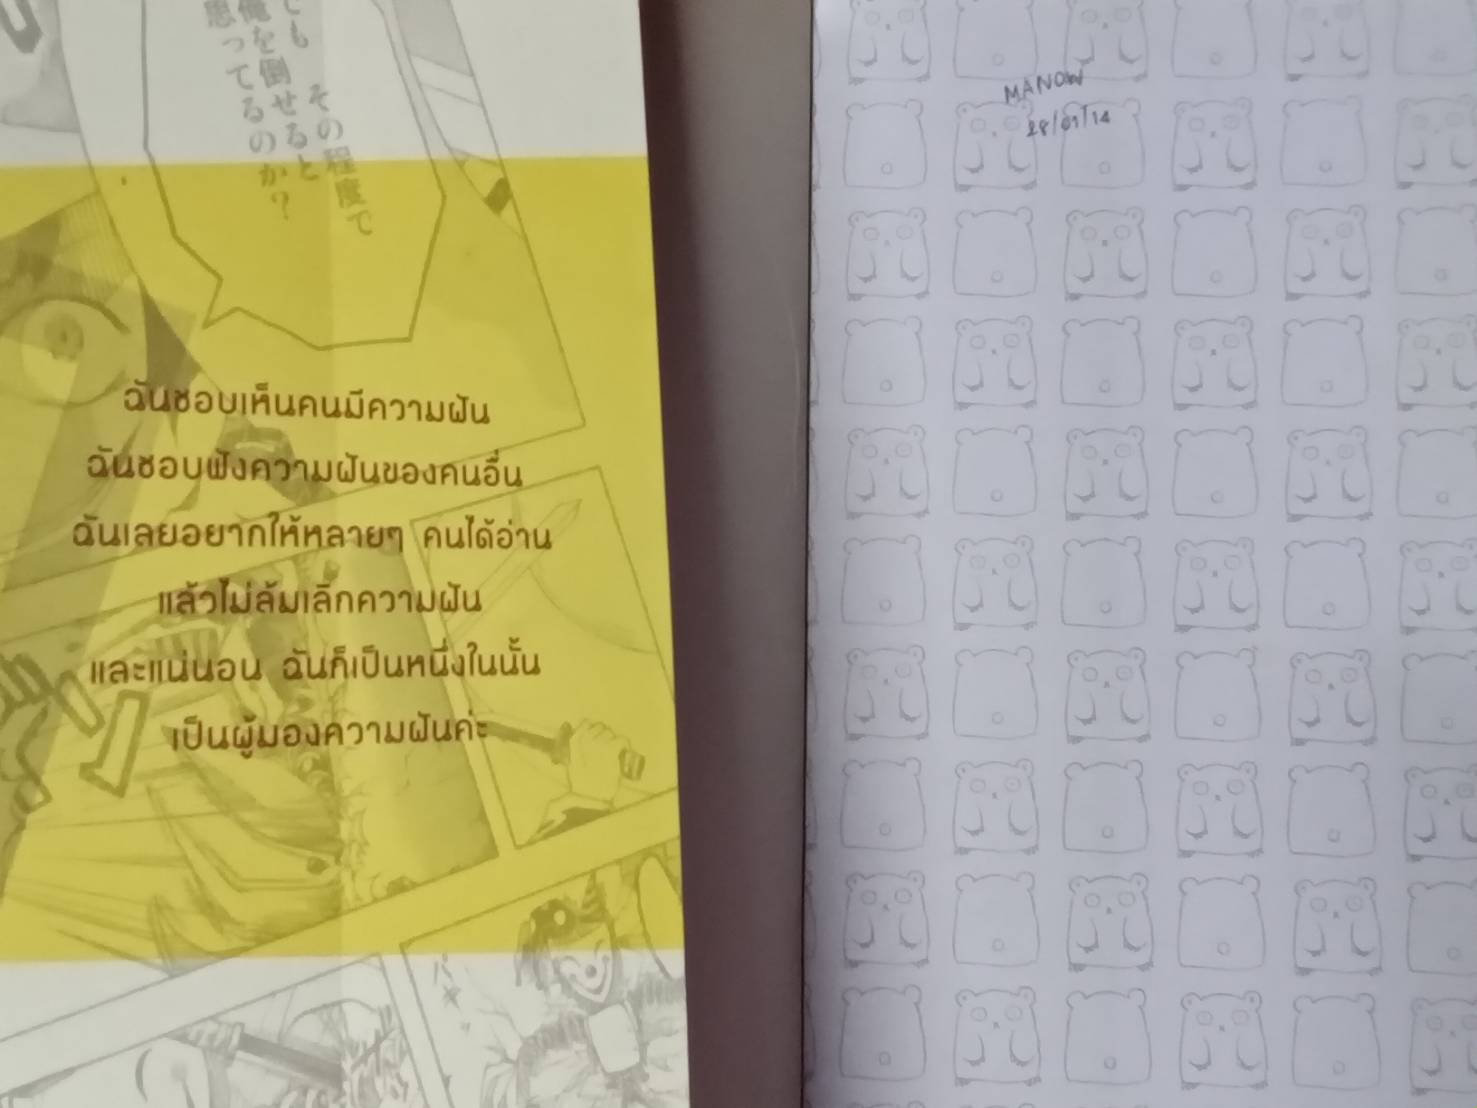 でも その程度で
俺を倒せると
思ってるのか?
ฉันชอบเห็นคนมีความฝัน
ฉันชอบฟังความฝันของคนอื่น
ฉันเลยอยากให้หลายๆ คนได้อ่าน
แล้วไม่ล้มเลิกความฝัน
และแน่นอน ฉันก็เป็นหนึ่งในนั้น
เป็นผู้มองความฝันค่ะ
MANOW
28/07/14